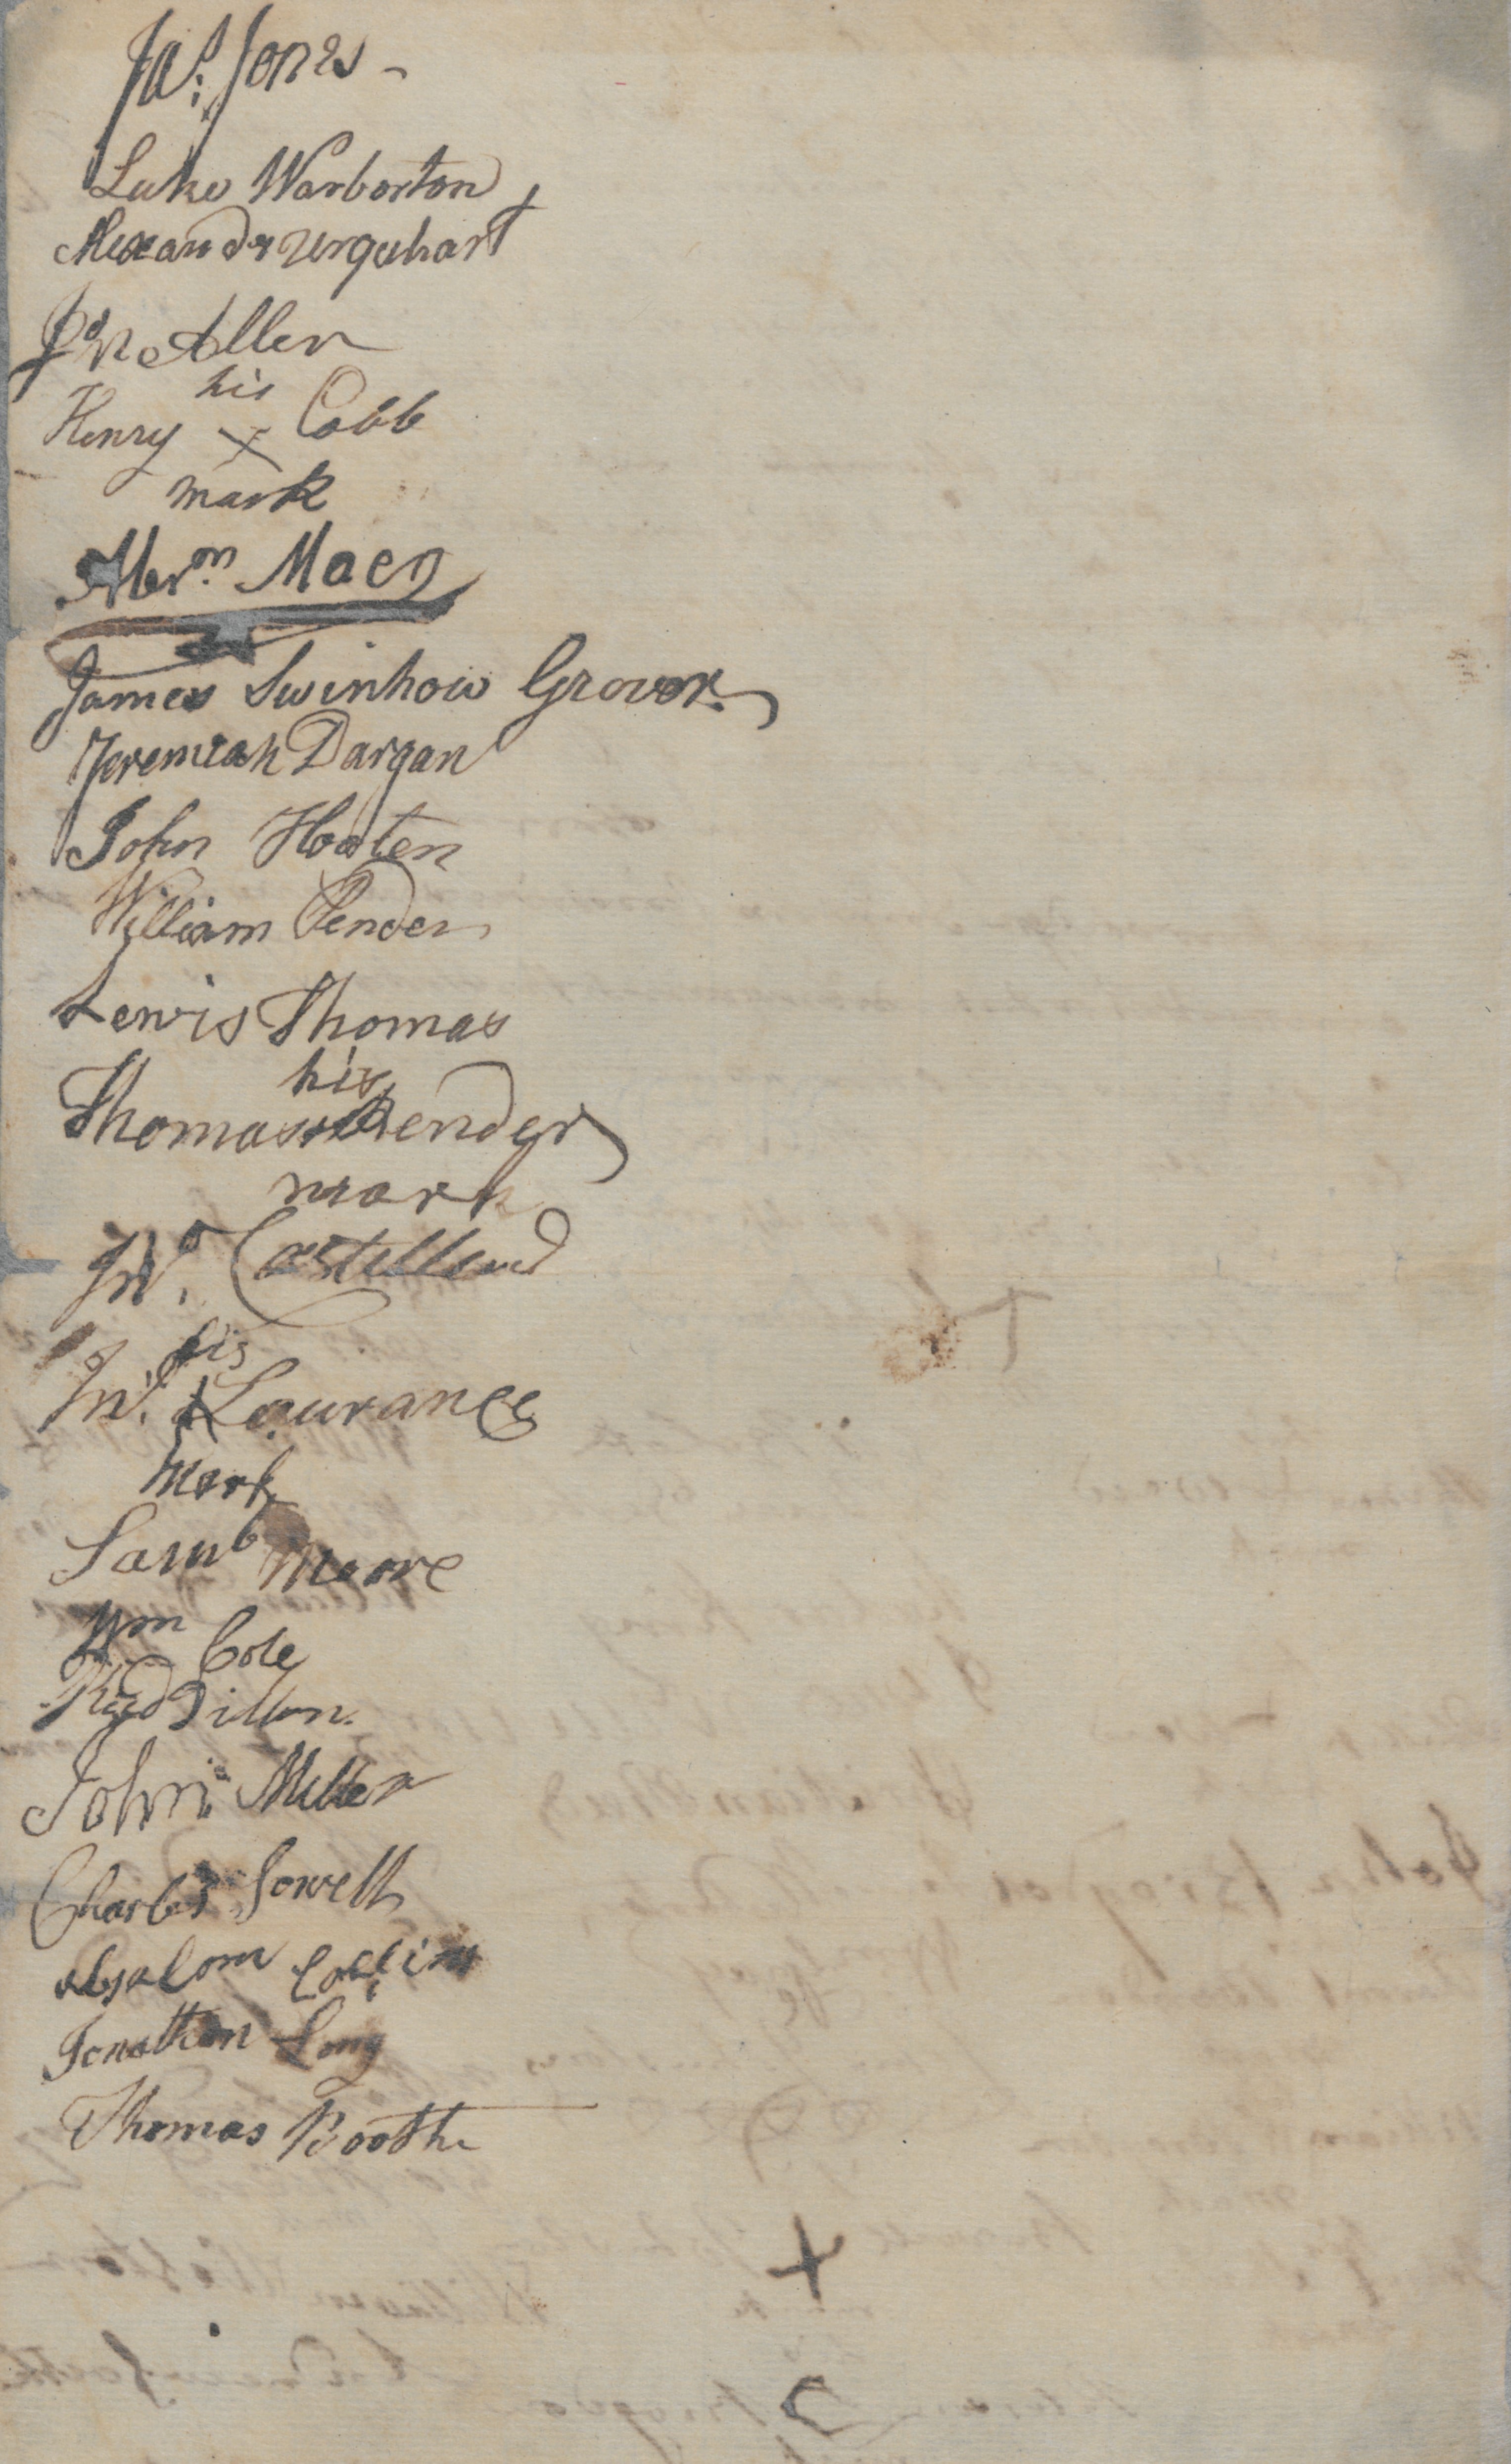 Jas. Jones
Luke Warborton
Alexander Urquhart
Jno Allen
his
Henry X Cobb
mark
Abrm. Macy
James Swinhow Grover.
Jeremiah Dargan
John Hooten
William Pender
Lewis Thomas
his
Thomas Pender
mark
Jno. Castelland
his
Jno. Laurance
mark
Saml Moore
Wm Cole
Rigd Dillon.
John Miller
Charles Sowell
Absalom Collins
Jonathan Long
Thomas Booth